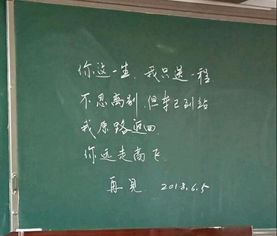 你这一生，我只送一程
不忍离别，但车已到站
我原路返回
你远走高飞
再见 2018.6.5